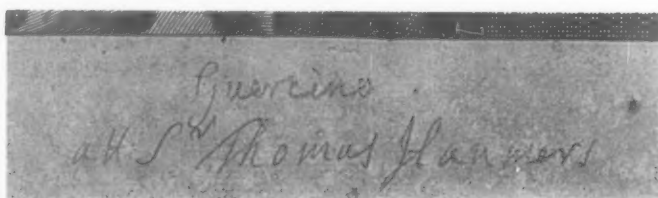 Guercino
att Sr Thomas Hanmers